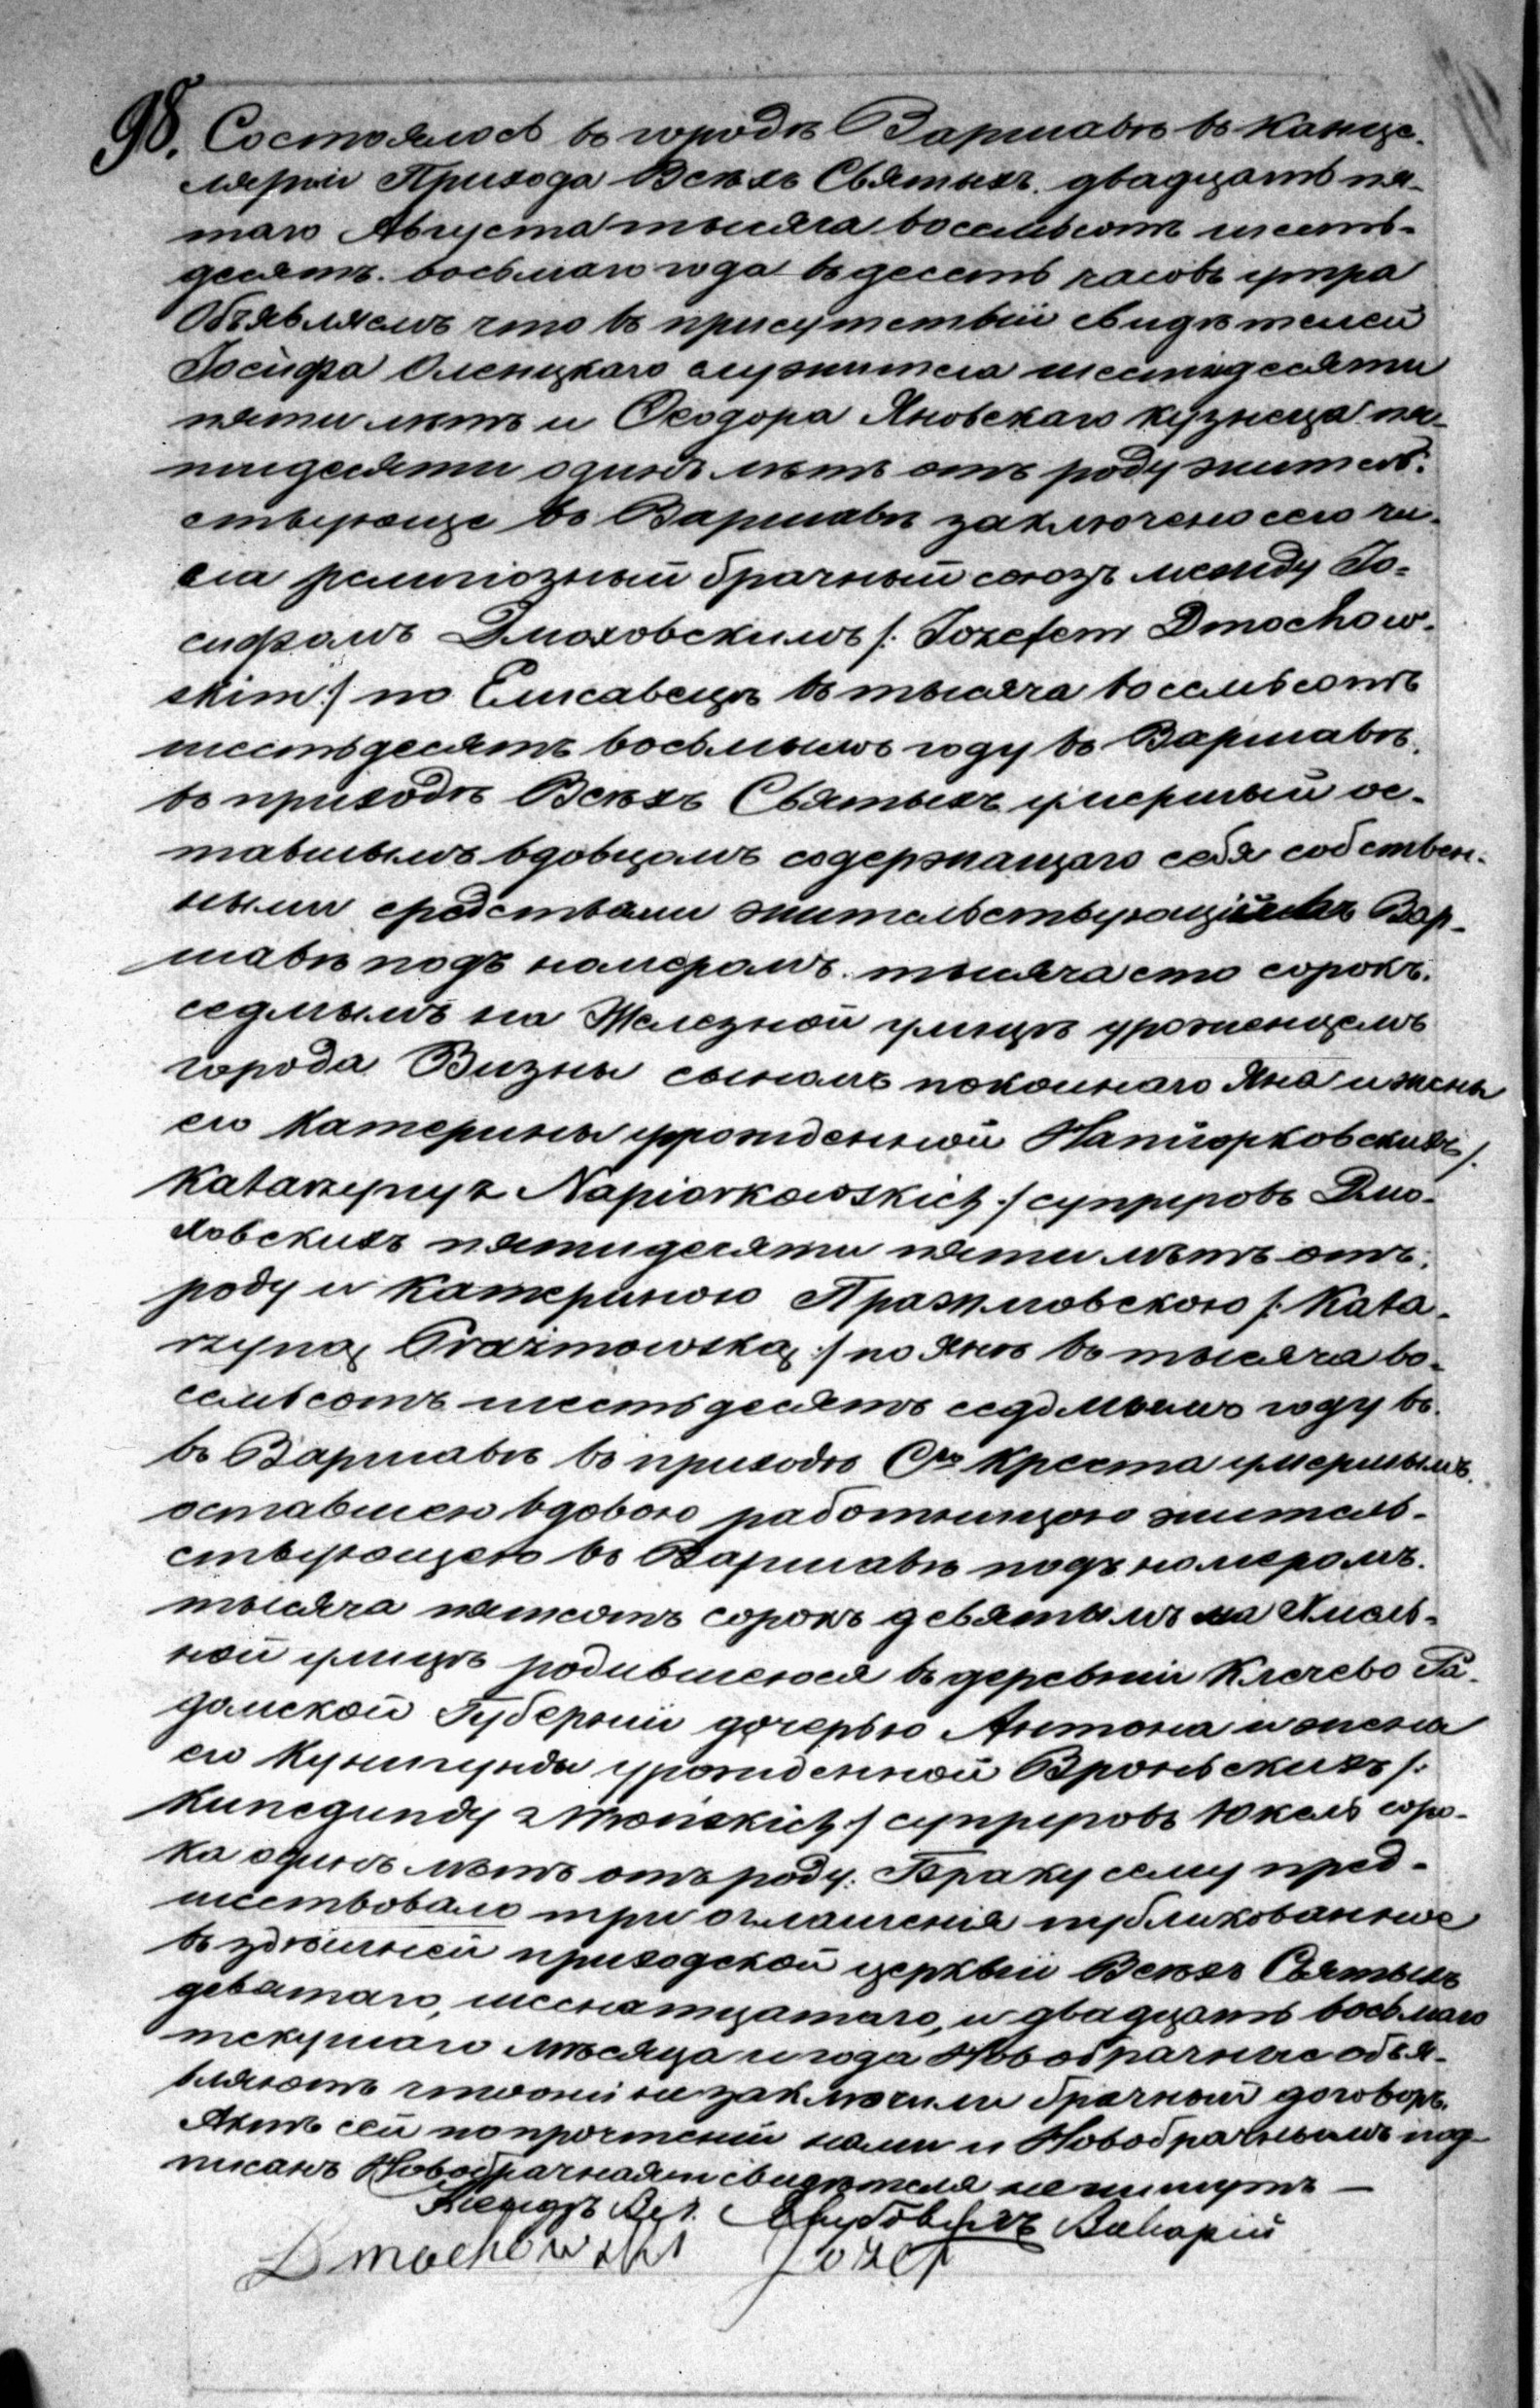 98. Состоялось въ городѣ Варшавѣ въ Канце-
ляріи Прихода Всѣхъ Святыхъ двадцать пя-
таго Августа тысяча восемьсотъ шесть-
десятъ восьмаго года въ десеть часовъ утра
Объявляемъ что въ присутствіи свидѣтелей
Іосифа Оленцкаго служителя шестидесяти
пяти лѣтъ и Ѳеодора Яновскаго кузнеца пя-
тидесяти одинъ лѣтъ отъ роду житель-
ствующе въ Варшавѣ заключено сего чи-
сла религіозный брачный союзъ между Іо-
сифомъ Дмоховскимъ /: Jozefem Dmochow-
skim :/ по Елисавецѣ въ тысяча восемьсотъ
шестьдесятъ восьмымъ году въ Варшавѣ
въ приходѣ Всѣхъ Святыхъ умершый ос-
тавшымъ вдовцомъ содержащаго себя собствен-
ными средствами жительствующій въ Вар-
шавѣ подъ номеромъ тысяча сто сорокъ
седмымъ на Железной улицѣ уроженцемъ
города Визны сыномъ покоинаго Яна и жены
его Катерины урожденной Напіорковскихъ /:
Katarzyny z Napiorkowskich :/ супруговъ Дмо-
ховскихъ пятидесяти пяти лѣтъ отъ
роду и Катериною Пражмовскою /: Kata-
rzyną Prażmowską :/ по Янѣ въ тысяча во-
семьсотъ шестьдесятъ седьмымъ году въ
въ Варшавѣ въ приходѣ Стг Креста умершымъ
оставшею вдовою работницою житель-
ствующею въ Варшавѣ подъ номеромъ
тысяча пятсотъ сорокъ девятымъ на Хмель-
ной улицѣ родившеюся въ деревніи Клечево Ра-
домской Губерніи дочерью Антона и жены
его Кунигунды урожденной Вроньскихъ /:
Kunegundy z Wrońskich :/ супруговъ Юкель соро-
ка одинъ лѣтъ отъ роду. Браку сему пред-
шествовало три оглашенія публикованные
въ здѣшней приходской церквіи Всѣхъ Святыхъ
деватаго, шеснатцатаго, и двадцать восьмаго
текущаго мѣсяца и года Новобрачные объя-
вляютъ что они не заключили брачный договоръ.
Актъ сей по прочтеніи нами и Новобрачнымъ под-
писанъ Новобрачная и свидѣтеля не пишутъ —
Ксендзъ Викарій
Dmochowski Józef